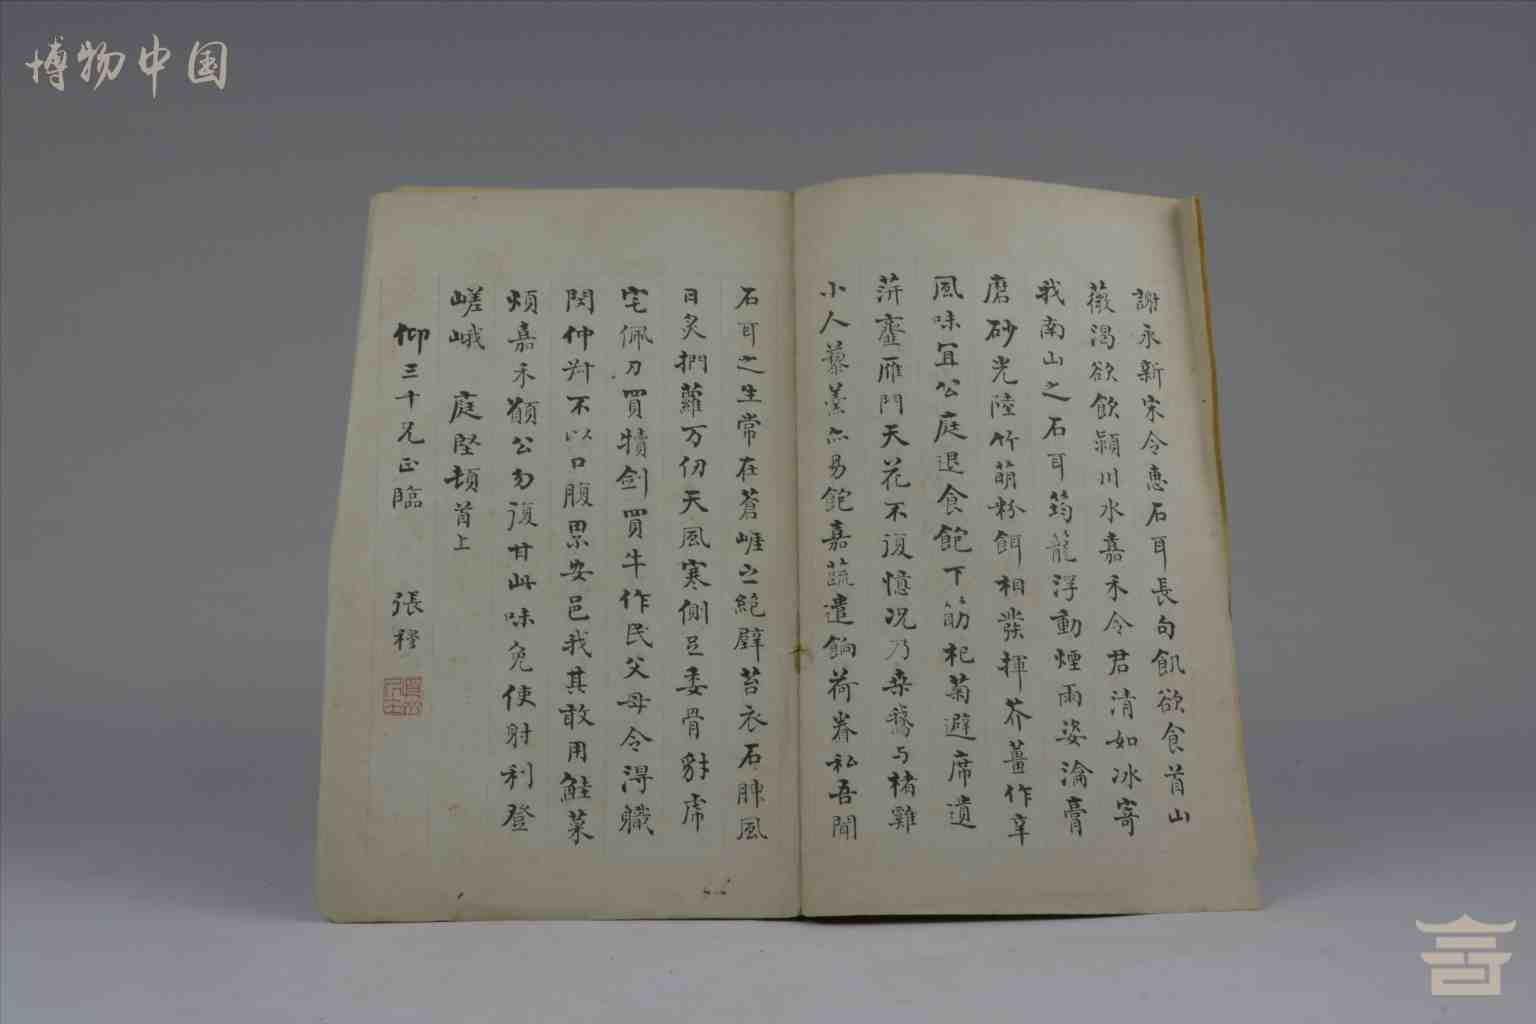 博物中国
謝永新宋令惠石耳長句飢欲食首山
薇渴欲飲潁川水嘉禾令君清如冰寄
我南山之石耳筠籠浮動煙雨姿瀹膏
磨砂光陸竹萌粉餌相發揮芥薑作辛
風味宜公庭退食飽下筯杞菊避席遺
萍虀雁門天花不復憶況乃桑鵞与楮雞
小人藜羹亦易飽嘉蔬遣餉荷眷私吾聞
石耳之生常在蒼崖之絕壁苔衣石腴風
日炙捫蘿万仞天風寒側足委骨豺虎
宅佩刀買犢劍買牛作民父母令得職
閔仲叔不以口腹累安邑我其敢用鮭菜
煩嘉禾願公勿復甘此味免使射利登
嵯峨 庭堅頓首上
仰三十兄正臨 張穆